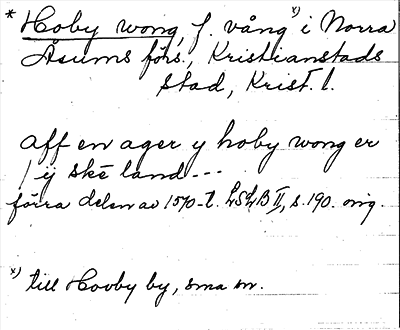 * Hoby wong, f. vång x) i Norra
Åsums förs., Kristianstads
stad, Krist. l.
aff en ager y hoby wong er
/ ij skē land ---
förra delen av 1570-t. LSLB II, s. 190. orig.
x) till Hovby by, sma sn.